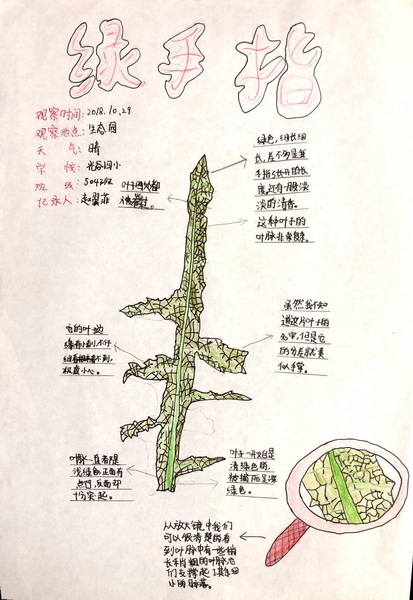 绿手指
观察时间:2018.10.29
观察地点:生态园
天 气:晴
学 校:光谷四小
班 级:504班
记录人:赵翌菲
绿色,细长细
长,差不多是我
手指5张开的长
度,还有一股淡
淡的清香。
这种叶子的
叶脉非常复杂。
虽然我不知
道这片叶子的
名字,但是它
的分差就像
似手掌。
它的叶边
缘有小刺,不仔
细看根本看不到,
极盘小心。
叶脉一直都是
浅绿色,正面有
点凹,反面却
十分突起。
叶子一开始是
清绿色的,
被摘后呈深
绿色。
从放大镜中我们
可以很清楚的看
到叶脉中有一些稍
长稍粗的叶脉,它
们支撑起了其它细
小的部落。